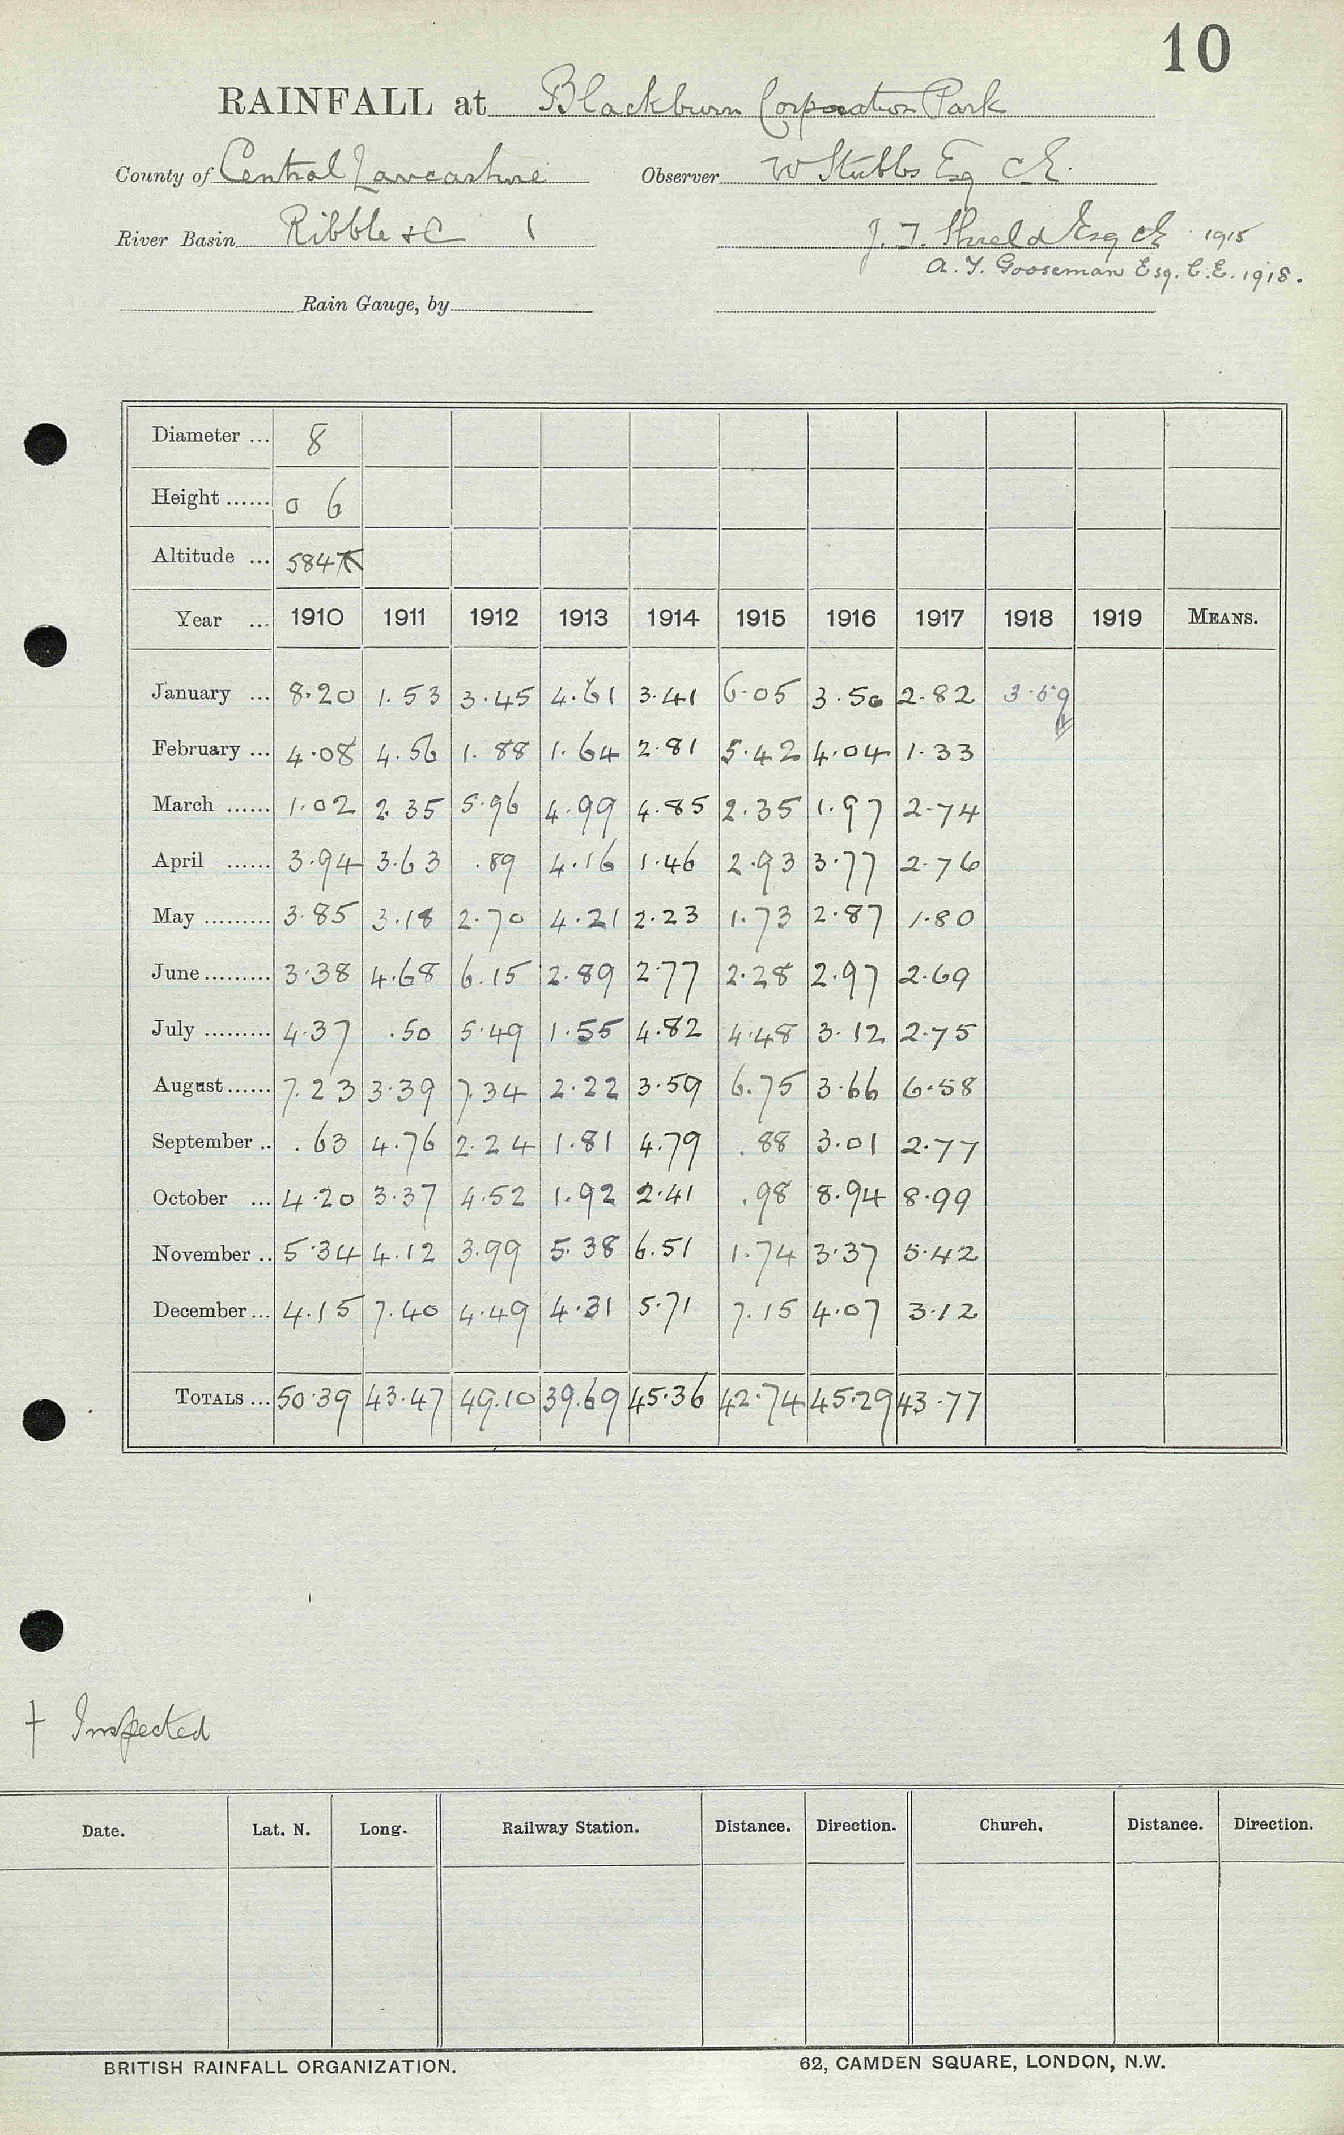 10
RAINFALL at Blackburn Corporation Park
County of Central Lancashire Observer W Stubbs Esq CE.
River Basin Ribble &C 1 J. T. Shield Esq CE 1915
A. T. Gooseman Esq. C.E. 1918.
Rain Gauge, by
Diameter ... 8
Height ...... 0 6
Altitude ... 584
Year ... 1910 1911 1912 1913 1914 1915 1916 1917 1918 1919 MEANS.
January ... 8.20 1.53 3.45 4.61 3.41 6.05 3.50 2.82 3.59
February ... 4.08 4.56 1.88 1.64 2.81 5.42 4.04 1.33
March ...... 1.02 2.35 5.96 4.99 4.85 2.35 1.97 2.74
April ...... 3.94 3.63 .89 4.16 1.46 2.93 3.77 2.76
May ......... 3.85 3.18 2.70 4.21 2.23 1.73 2.87 1.80
June ......... 3.38 4.68 6.15 2.89 2.77 2.28 2.97 2.69
July ......... 4.37 .50 5.49 1.55 4.82 4.48 3.12 2.75
August ...... 7.23 3.39 7.34 2.22 3.59 6.75 3.66 6.58
September .. .63 4.76 2.24 1.81 4.79 .88 3.01 2.77
October ... 4.20 3.37 4.52 1.92 2.41 .98 8.94 8.99
November .. 5.34 4.12 3.99 5.38 6.51 1.74 3.37 5.42
December ... 4.15 7.40 4.49 4.31 5.71 7.15 4.07 3.12
TOTALS ... 50.39 43.47 49.10 39.69 45.36 42.74 45.29 43.77
† Inspected
Date. Lat. N. Long. Railway Station. Distance. Direction. Church. Distance. Direction.
BRITISH RAINFALL ORGANIZATION. 62, CAMDEN SQUARE, LONDON, N.W.